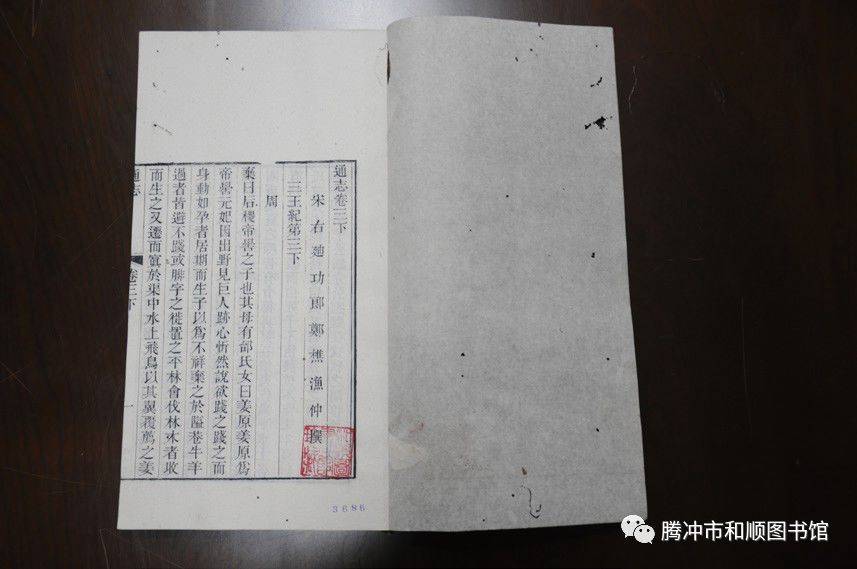 通志卷三下
宋右廸功郎鄭樵漁仲撰
三王紀第三下
周
棄曰后稷帝嚳之子也其母有邰氏女曰姜原姜原爲
帝嚳元妃因出野見巨人跡心忻然說欲踐之踐之而
身動如孕者居期而生子以爲不祥棄之於隘巷牛羊
過者皆避不踐或腓字之徙置之平林會伐林木者收
而生之又遷而寘於渠中水上飛鳥以其翼覆薦之姜
通志
卷三下
一
3686
腾冲市和顺图书馆